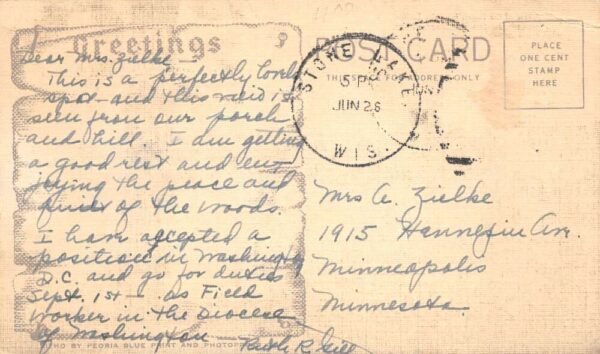 Greetings
Dear Mrs. Zielke —
This is a perfectly lovely
spot – and this view is
seen from our porch
and hill. I am getting
a good rest and en-
joying the peace and
quiet of the woods.
I have accepted a
position in Washington
D.C. and go for duties
Sept. 1st – as Field
Worker in the Diocese
of Washington
PHOTO BY PEORIA BLUE PRINT AND
POST CARD
FOR ADDRESS ONLY
STONE LAKE
5 PM
JUN 26
WIS.
JUN
PLACE
ONE CENT
STAMP
HERE
Mrs A. Zielke
1915 Hennepin Av.
Minneapolis
Minnesota.